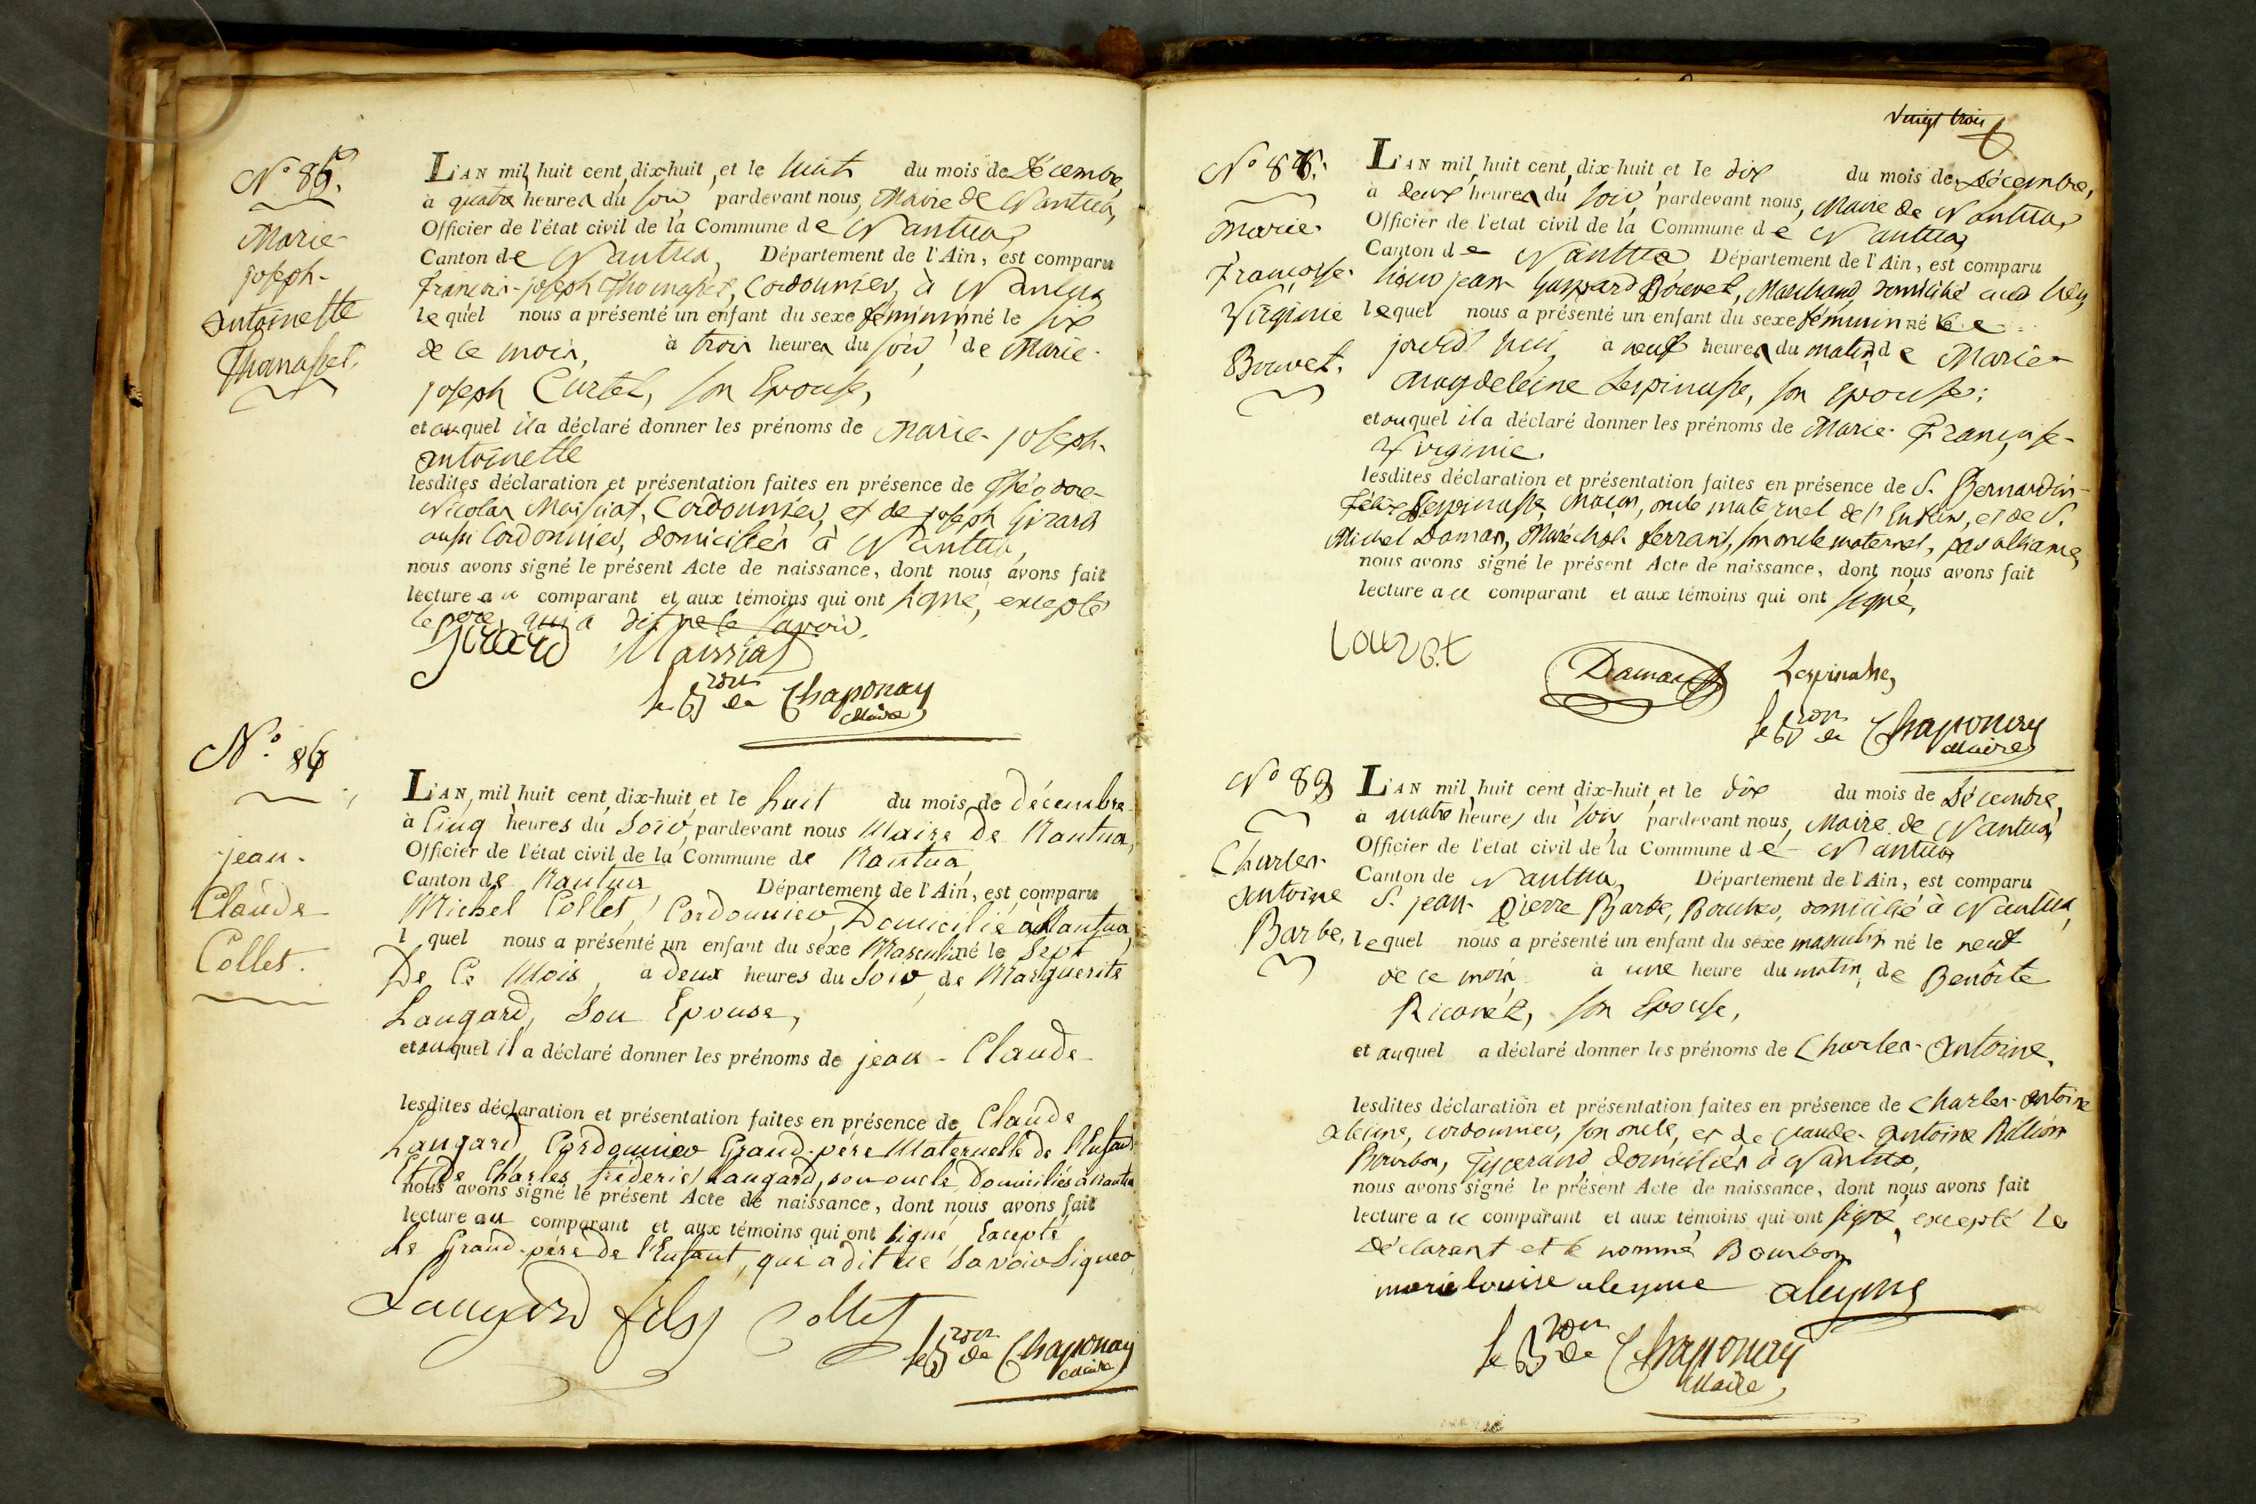 N.º 86.
Marie-
joseph-
antoinette
Thomasset.
L'AN mil huit cent dix-huit, et le huit du mois de Décembre,
à quatre heures du soir pardevant nous, Maire de Nantua,
Officier de l'état civil de la Commune de Nantua,
Canton de Nantua, Département de l'Ain, est comparu
françois-joseph Thomasset, Cordonnier, à Nantua
lequel nous a présenté un enfant du sexe féminin né le six
de ce mois, à trois heures du soir, de Marie-
joseph Curtet, son Epouse,
et auquel il a déclaré donner les prénoms de Marie-joseph-
antoinette
lesdites déclaration et présentation faites en présence de Théodore-
Nicolas Maissiat, Cordonnier, et de joseph Girard
aussi Cordonnier, domiciliés à Nantua,
nous avons signé le présent Acte de naissance, dont nous avons fait
lecture au comparant et aux témoins qui ont signé, excepté
le père, qui a dit ne le savoir.
Girard Maissiat
le Bron de Chaponay
Maire
N.º 87
jean-
Claude
Collet.
L'AN mil huit cent dix-huit et le huit du mois de décembre
à Cinq heures du Soir, pardevant nous Maire De Nantua,
Officier de l'état civil de la Commune de Nantua,
Canton de Nantua Département de l'Ain, est comparu
Michel Collet, Cordonnier, Domicilié à Nantua,
l quel nous a présenté un enfant du sexe Masculin né le Sept
De Ce Mois, à deux heures du Soir, de Marguerite
Laugard, Son Epouse,
et auquel il a déclaré donner les prénoms de jean-Claude
lesdites déclaration et présentation faites en présence de Claude
Laugard, Cordonnier Grand-père Maternelle de l'Enfant
Et De Charles fréderic Laugard, son oncle Domiciliés à Nantua
nous avons signé le présent Acte de naissance, dont nous avons fait
lecture au comparant et aux témoins qui ont signé, Excepté
Le Grand-père De l'Enfant, qui a dit ne Savoir Signer
Laugard fils Collet
le Bron de Chaponay
Maire
vingt trois
N.º 88.
Marie-
Françoise-
Virginie
Bouvet.
L'AN mil huit cent dix-huit et le dix du mois de Décembre,
à deux heures du soir, pardevant nous, Maire de Nantua,
Officier de l'etat civil de la Commune de Nantua,
Canton de Nantua Département de l'Ain, est comparu
sieur jean-Gaspard Bouvet, Marchand, domicilié
lequel nous a présenté un enfant du sexe féminin né le
jourd'hui, à neuf heures du matin de Marie-
Magdeleine Lespinasse, son Epouse;
et auquel il a déclaré donner les prénoms de Marie-Françoise-
Virginie.
lesdites déclaration et présentation faites en présence de S. Bernardin-
Félix Lespinasse, Maçon, oncle maternel de l'Enfant, et de S.
Michel Daman, Maréchal ferrant, son oncle maternel, par alliance,
nous avons signé le présent Acte de naissance, dont nous avons fait
lecture au comparant et aux témoins qui ont signé,
Daman Lespinasse,
le Bron de Chaponay
Maire
N.º 89
Charles-
antoine
Barbe.
L'AN mil huit cent dix-huit, et le dix du mois de Décembre,
à quatre heures du soir pardevant nous, Maire de Nantua,
Officier de l'etat civil de la Commune de Nantua
Canton de Nantua, Département de l'Ain, est comparu
S. jean-Pierre Barbe, Boucher, domicilié à Nantua,
lequel nous a présenté un enfant du sexe masculin né le neuf
de ce mois à une heure du matin, de Benôite
son Epouse,
et auquel a déclaré donner les prénoms de Charles-antoine,
lesdites déclaration et présentation faites en présence de Charles-antoine
aleyme, cordonnier, son oncle, et de Claude-antoine
Bourbon, Tisserand, domiciliés à Nantua,
nous avons signé le présent Acte de naissance, dont nous avons fait
lecture au comparant et aux témoins qui ont signé, excepté le
Déclarant et le nommé Bourbon
marie louise aleyme aleyme
le Bron de Chaponay
Maire